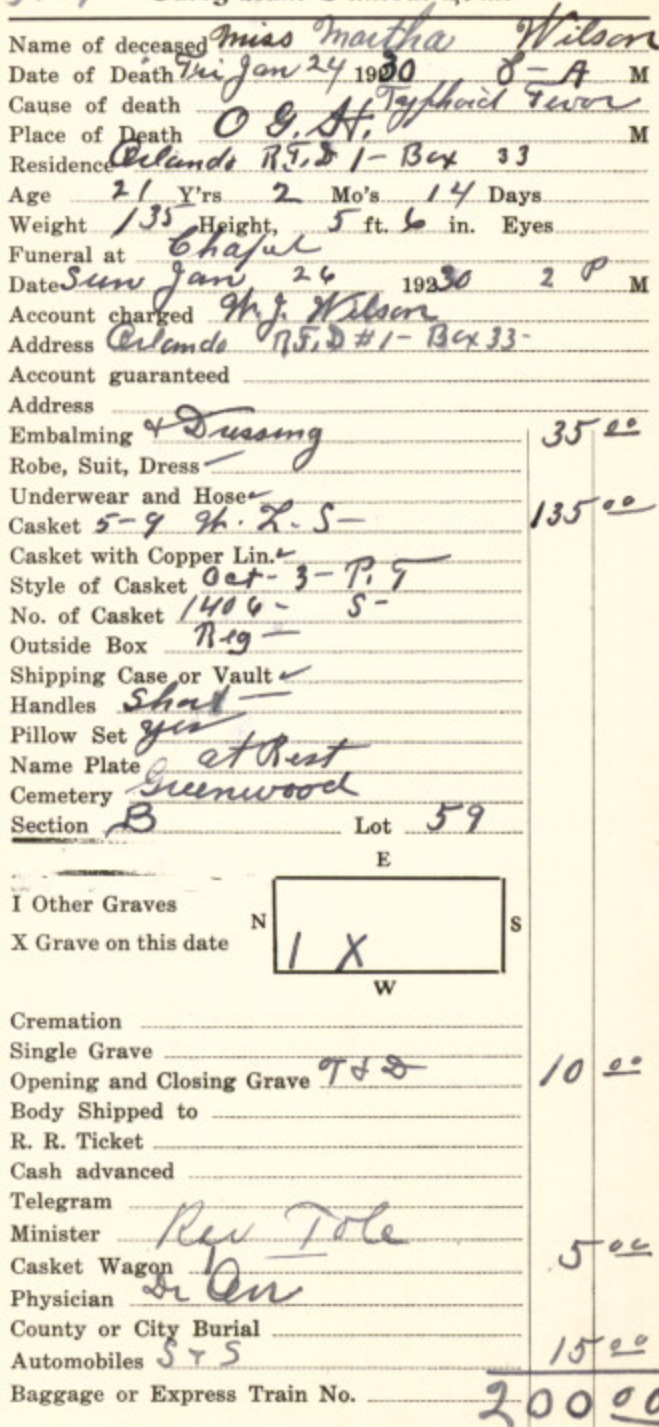 Name of deceased Miss Martha Wilson
Date of Death Fri Jan 24 1930 8 - A M
Cause of death Typhoid Fever
Place of Death O G. H. M
Residence Orlando R.F.D 1 - Box 33
Age 21 Y'rs 2 Mo's 14 Days
Weight 135 Height, 5 ft. 6 in. Eyes
Funeral at Chapel
Date Sun Jan 26 19230 2 P M
Account charged W. J. Wilson
Address Orlando R.F.D #1 - Box 33 -
Account guaranteed
Address
Embalming & Dressing 35 00
Robe, Suit, Dress
Underwear and Hose
Casket 5-9 W. L. S - 135 00
Casket with Copper Lin.
Style of Casket Oct - 3 - P. T
No. of Casket 1406 - S -
Outside Box Reg -
Shipping Case or Vault
Handles Short -
Pillow Set yes
Name Plate at Rest
Cemetery Greenwood
Section B Lot 59
E
I Other Graves
N S
X Grave on this date
1 X
W
Cremation
Single Grave
Opening and Closing Grave T & D 10 00
Body Shipped to
R. R. Ticket
Cash advanced
Telegram
Minister Rev Tole
Casket Wagon 5 00
Physician Dr Orr
County or City Burial
Automobiles S & S 15 00
Baggage or Express Train No. 200 00